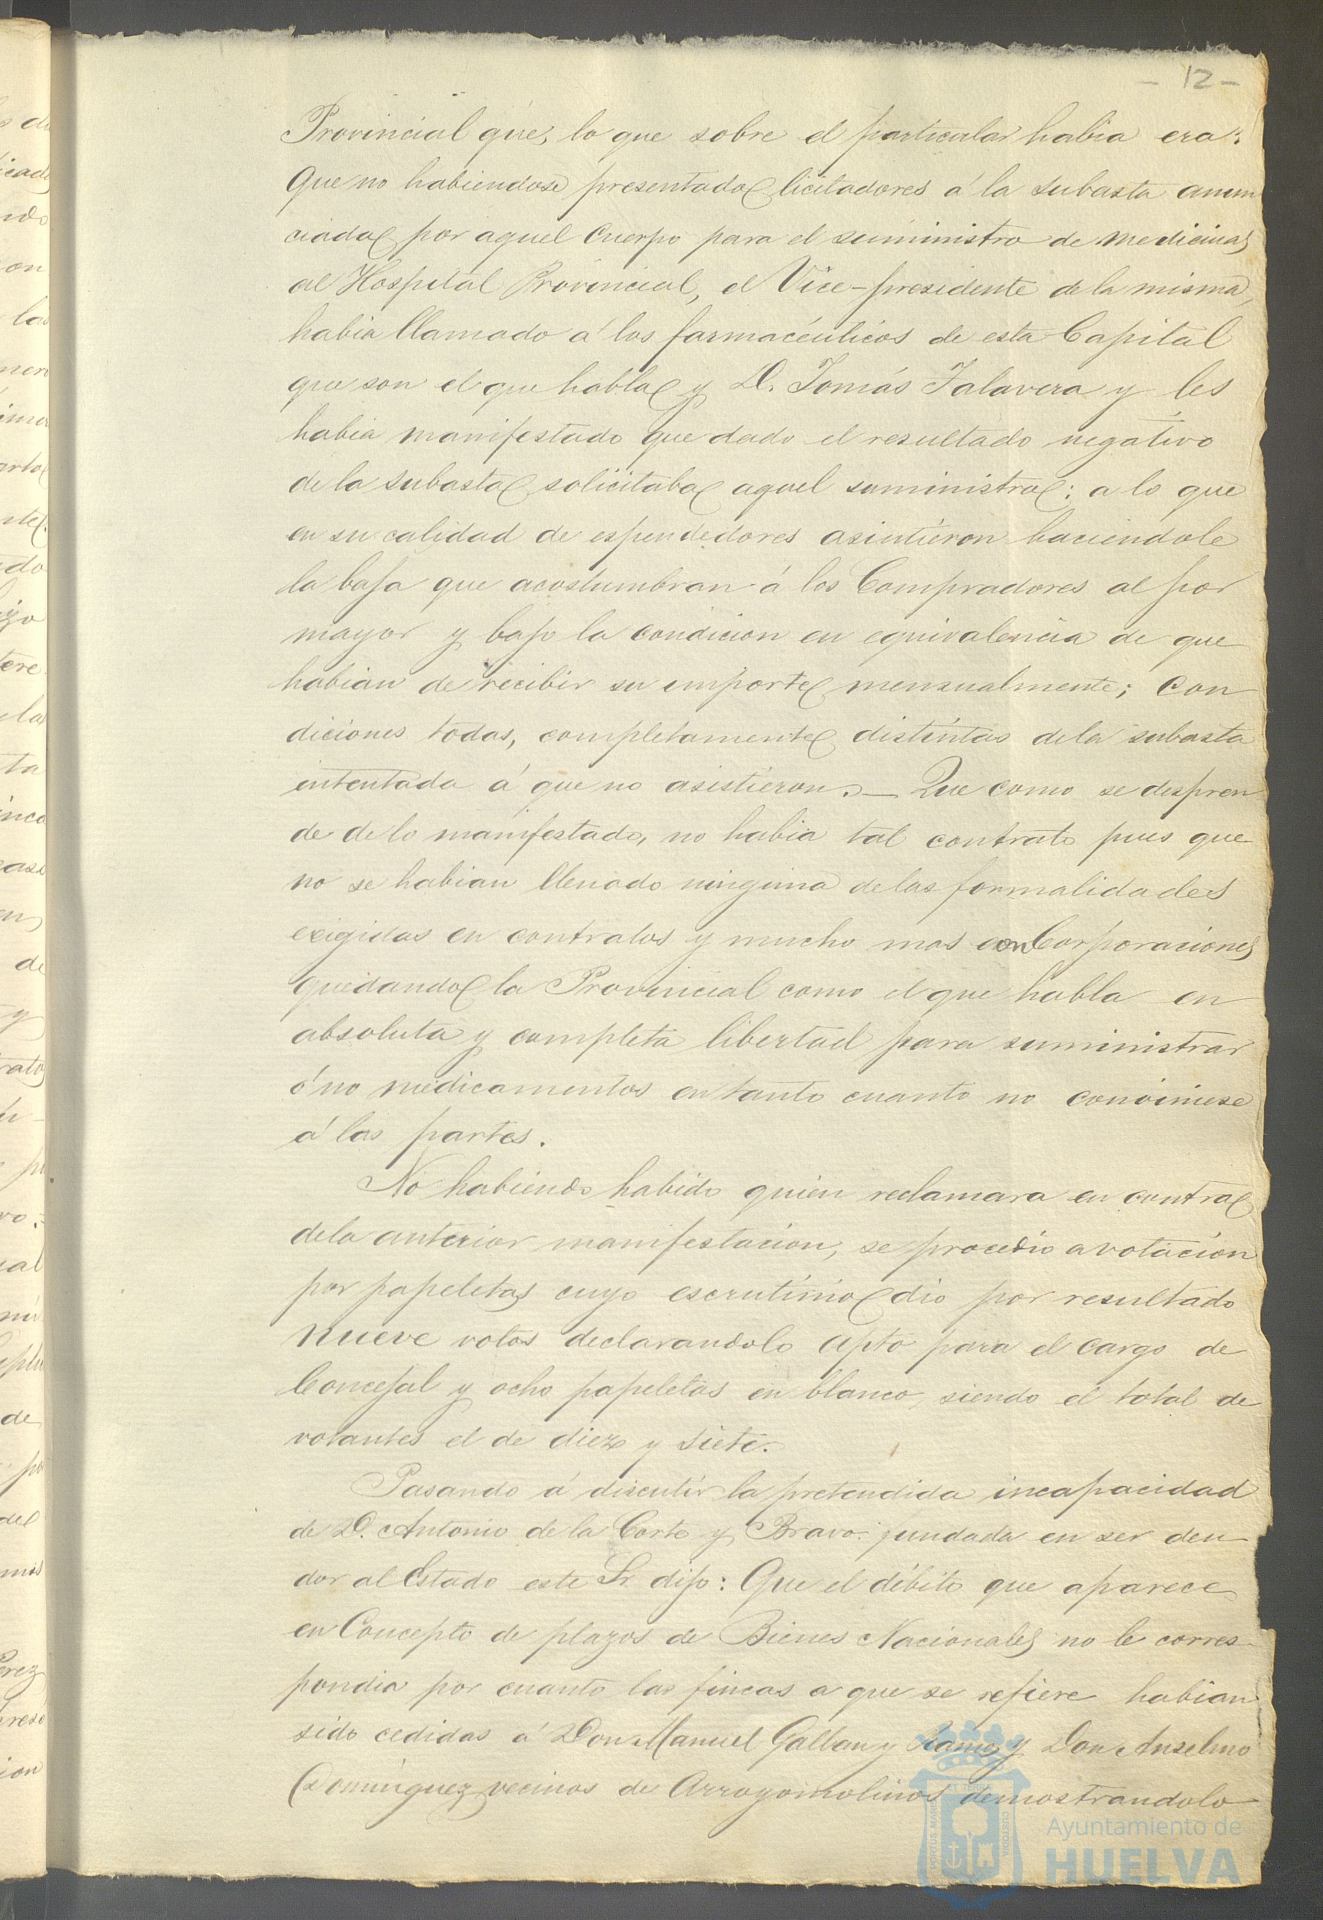 - 12 -
Provincial que, lo que sobre el particular habia era:
Que no habiendose presentado licitadores á la subasta anun
ciada por aquel Cuerpo para el suministro de medicinas
al Hospital Provincial, el Vice-presidente de la misma,
habia llamado á los farmacéuticos de esta Capital
que son el que habla y D. Tomás Talavera y les
habia manifestado que dado el resultado negativo
de la subasta solicitaba aquel suministro; a lo que
en su calidad de espendedores asintieron haciendole
la baja que acostumbran á los Compradores al por
mayor y bajo la condicion en equivalencia de que
habian de recibir su importe mensualmente; Con
diciones todas, completamente distintas dela subasta
intentada á que no asistieron. — Que como se despren
de de lo manifestado, no habia tal contrato pues que
no se habian llenado ninguna delas formalidades
exigidas en contratos y mucho mas con Corporaciones
quedando la Provincial como el que habla en
absoluta y completa libertad para suministrar
ó no medicamentos en tanto cuanto no conviniese
á las partes.
No habiendo habido quien reclamara en contra
dela anterior manifestacion, se procedio a votacion
por papeletas cuyo escrutinio dio por resultado
nueve votos declarandolo apto para el cargo de
Concejal y ocho papeletas en blanco, siendo el total de
votantes el de diez y siete.
Pasando á discutir la pretendida incapacidad
de D. Antonio de la Corte y Bravo fundada en ser deu-
dor al Estado este Sr. dijo: Que el débito que aparece
en Concepto de plazos de Bienes Nacionales no le corres-
pondia por cuanto las fincas a que se refiere habian
sido cedidas á Don Manuel Galban y Ramos y Don Anselmo
Dominguez vecinos de Arroyomolinos demostrandolo
Ayuntamiento de
HUELVA